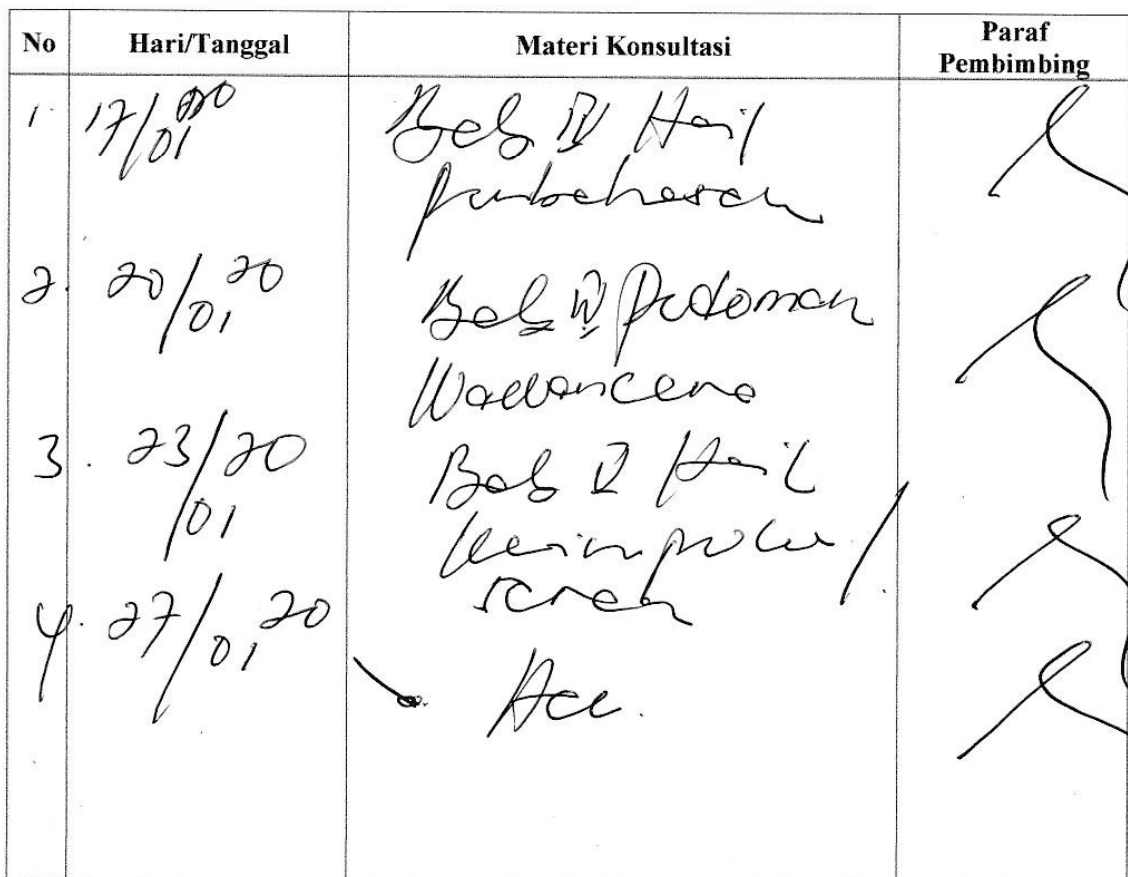 No Hari/Tanggal Materi Konsultasi Paraf
Pembimbing
1. 17/01 20 Bab IV Hasil
pembahasan
2. 20/01 20 Bab IV Pedoman
Wawancara
3. 23/01 20 Bab V Hasil
kesimpulan /
saran
4. 27/01 20 Acc.